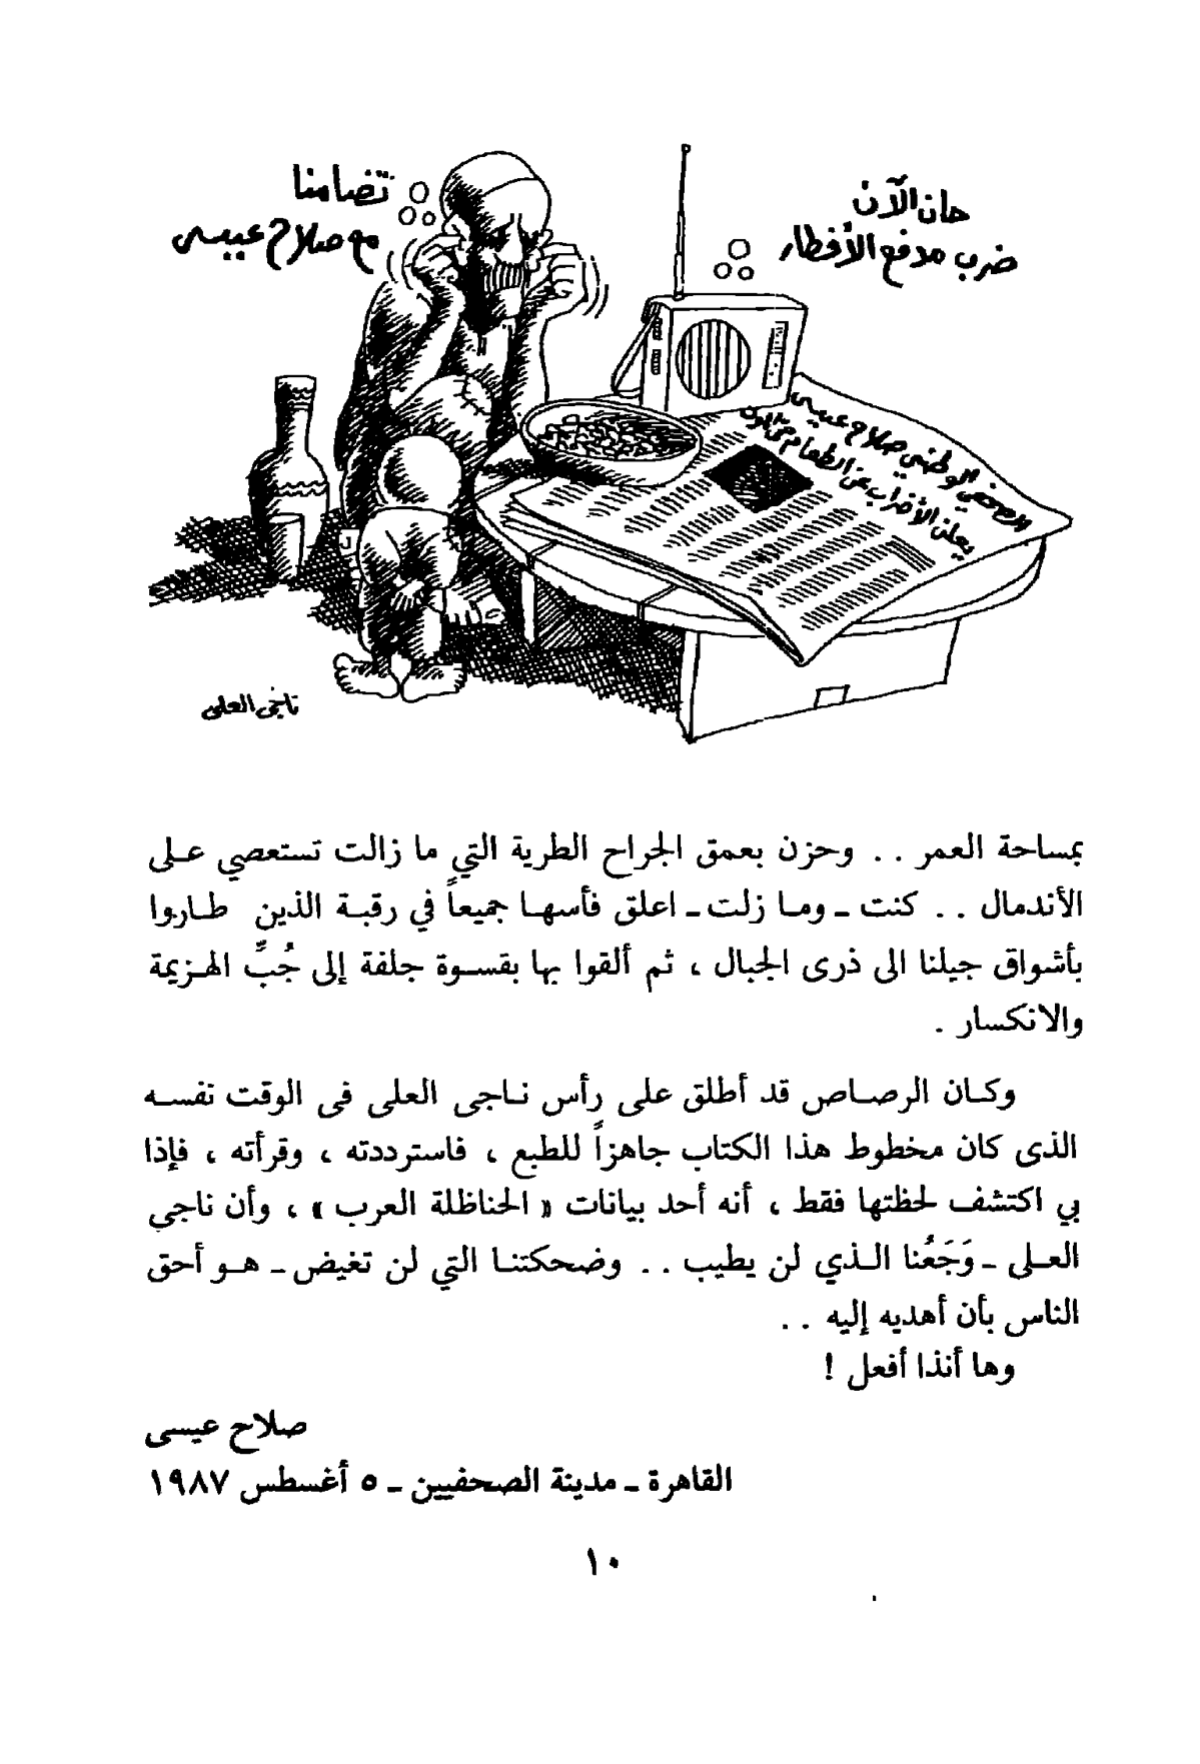 حان الآن
ضرب مدفع الأفطار
تضامنا
مع صلاح عيسى
الصحفي الوطني صلاح عيسى
يعلن الأضراب عن الطعام حتى
ناجي العلي
بمساحة العمر . . وحزن بعمق الجراح الطرية التي ما زالت تستعصي على
الأندمال . . كنت ـ وما زلت ـ اعلق فأسها جميعاً في رقبة الذين طاروا
بأشواق جيلنا الى ذرى الجبال ، ثم ألقوا بها بقسوة جلفة إلى جُبِّ الهزيمة
والانكسار .
وكان الرصاص قد أطلق على رأس ناجى العلى فى الوقت نفسه
الذى كان مخطوط هذا الكتاب جاهزاً للطبع ، فاسترددته ، وقرأته ، فإذا
بي اكتشف لحظتها فقط ، أنه أحد بيانات « الحناظلة العرب » ، وأن ناجي
العلى ـ وَجَعُنا الذي لن يطيب . . وضحكتنا التي لن تغيض ـ هو أحق
الناس بأن أهديه إليه . .
وها أنذا أفعل !
صلاح عيسى
القاهرة ـ مدينة الصحفيين ـ ٥ أغسطس ١٩٨٧
١٠